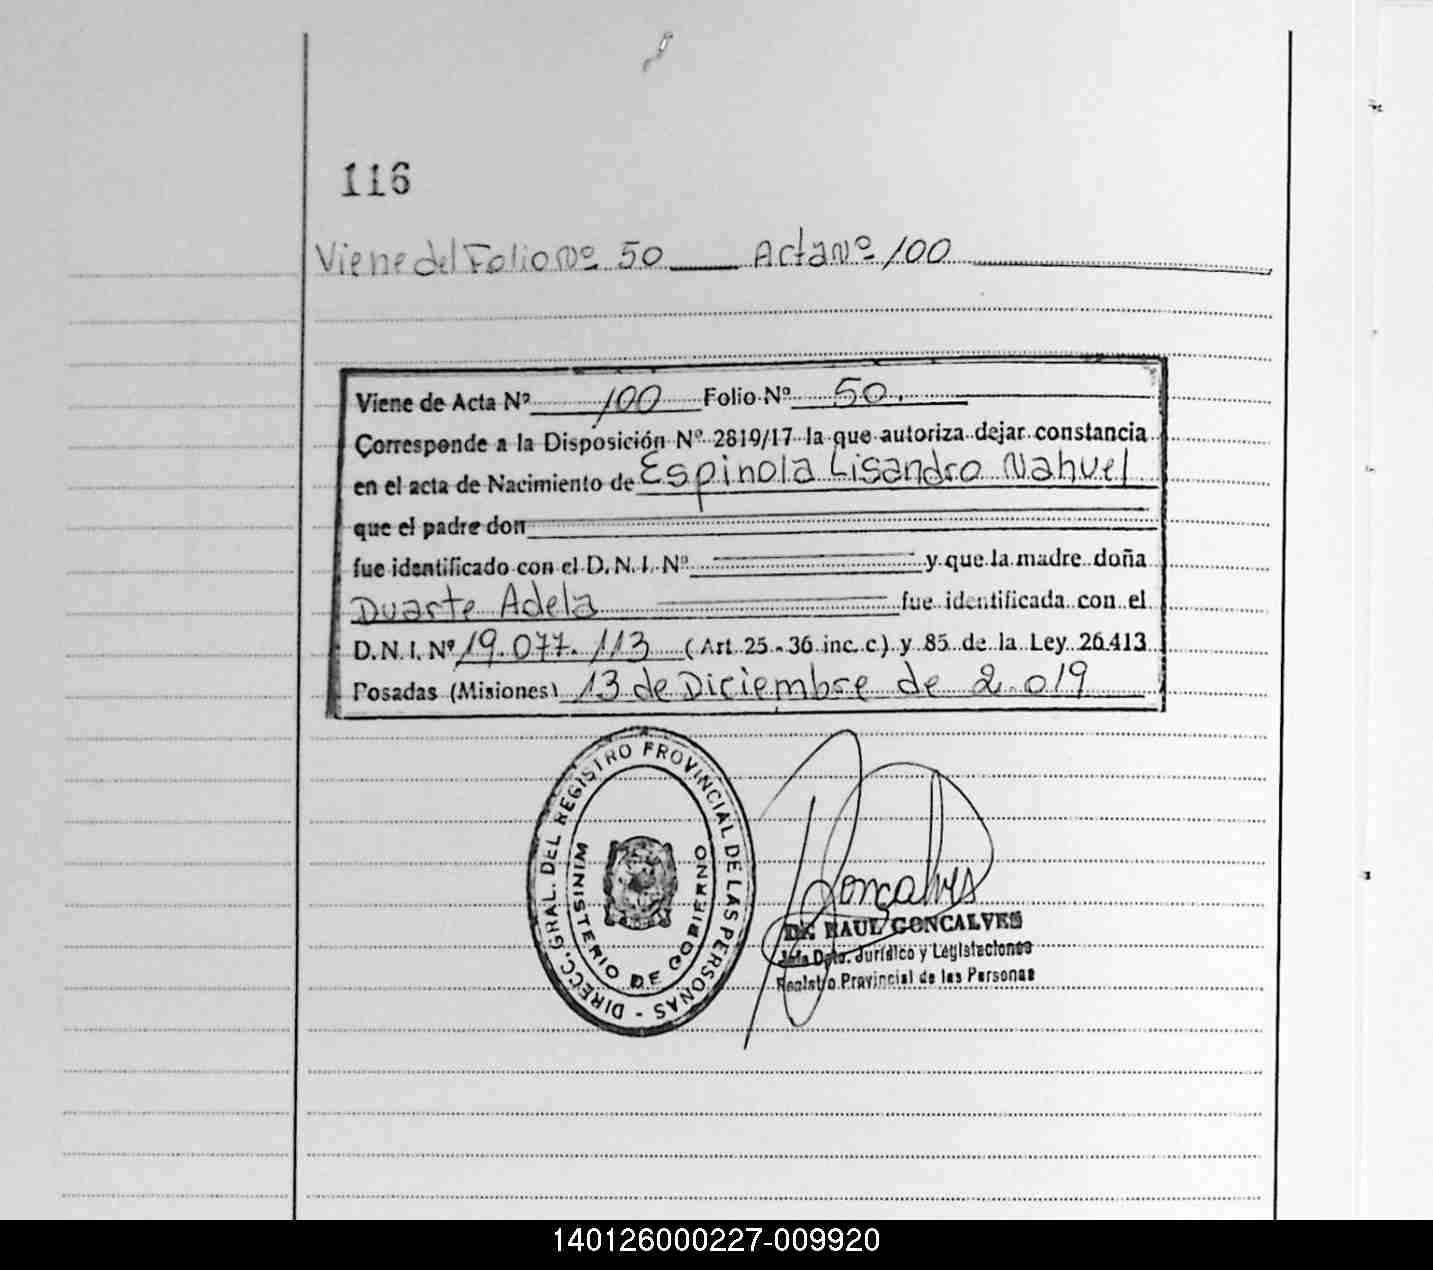 116
Viene del Folio Nº 50 Acta Nº 100
Viene de Acta Nº 100 Folio Nº 50.
Corresponde a la Disposición Nº 2819/17 la que autoriza dejar constancia
en el acta de Nacimiento de Espinola Lisandro Nahuel
que el padre don
fue identificado con el D. N. I. Nº y que la madre doña
Duarte Adela fue identificada con el
D. N. I. Nº 19.077.113 (Art 25 - 36 inc. c) y 85 de la Ley 26413
Posadas (Misiones) 13 de Diciembre de 2.019
DIRECC. GRAL. DEL REGISTRO PROVINCIAL DE LAS PERSONAS -
MINISTERIO DE GOBIERNO
Goncalves
Dr. RAUL GONCALVES
Jefe Dpto. Jurídico y Legislaciones
Registro Provincial de las Personas
140126000227-009920